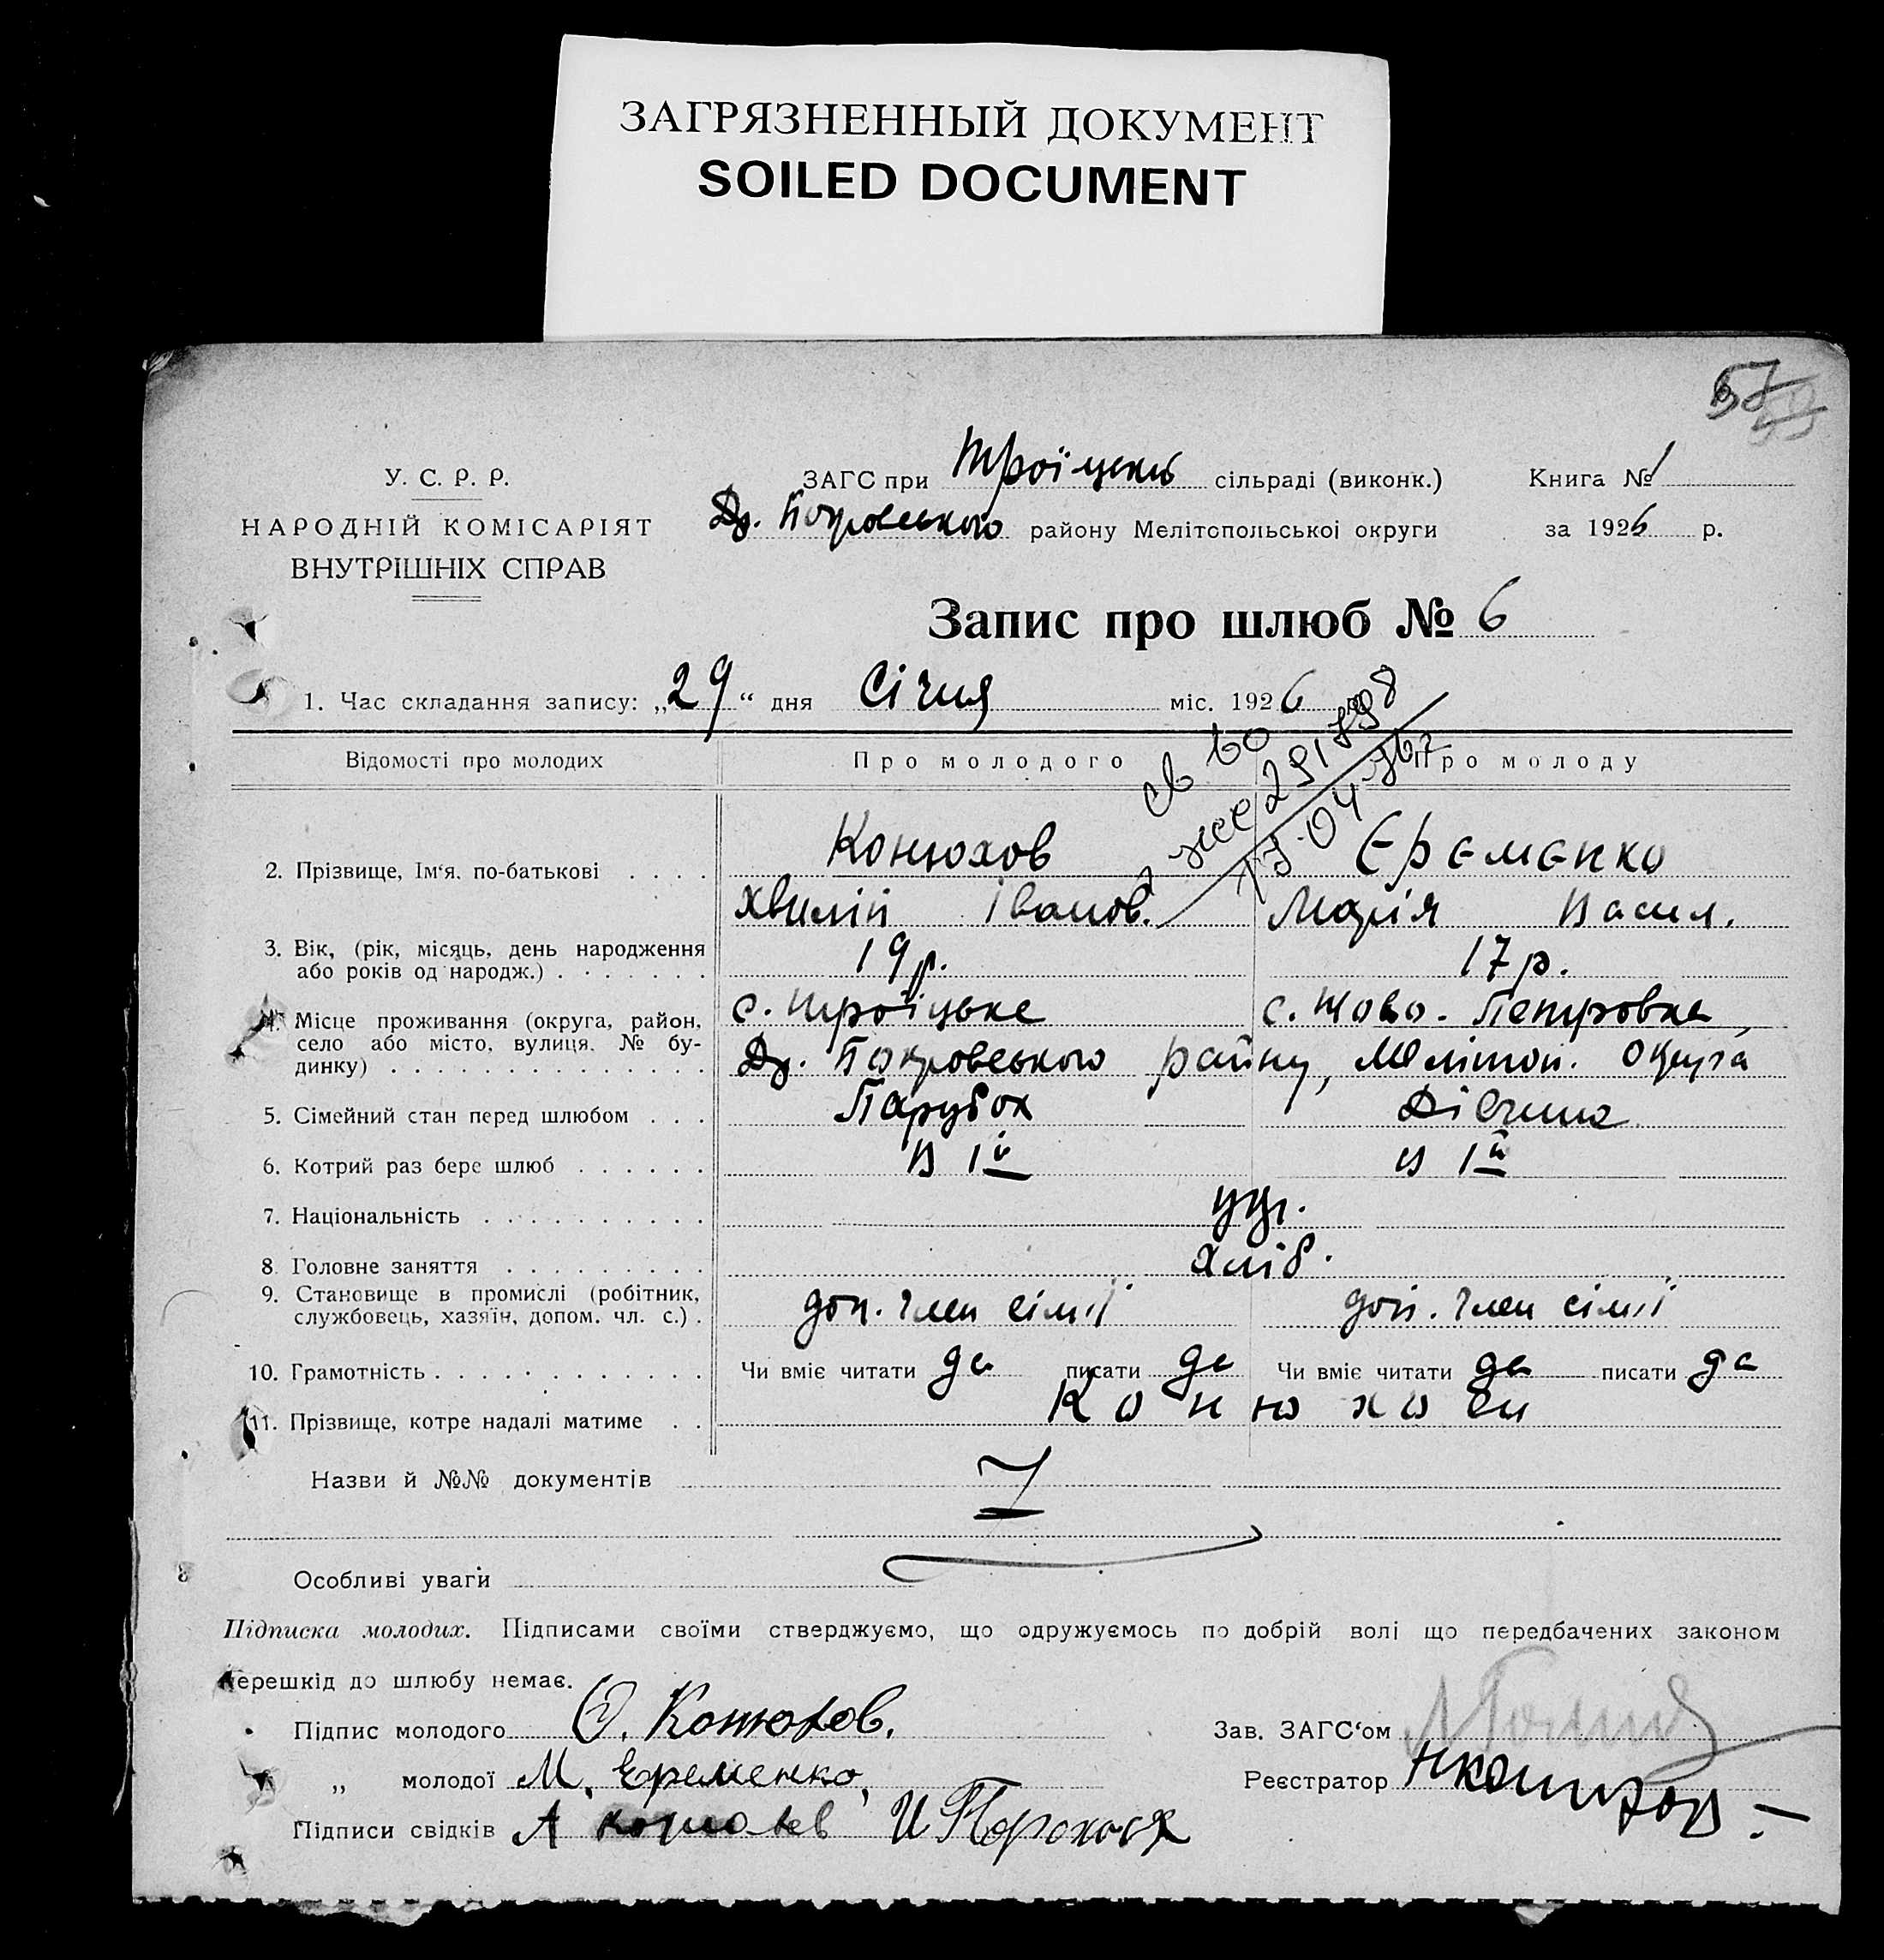 ЗАГРЯЗНЕННЫЙ ДОКУМЕНТ
SOILED DOCUMENT
У. С. Р. Р.
НАРОДНІЙ КОМІСАРІЯТ
ВНУТРІШНІХ СПРАВ
ЗАГС при Троїцький сільраді (виконк.) Книга № 1
Др. Покровського району Мелітопольської округи за 1926 р.
Запис про шлюб № 6
1. Час складання запису: „29“ дня Січня міс. 1926 р.
Відомості про молодих Про молодого Про молоду
2. Прізвище, Ім‘я, по-батькові Конюхов Єрємєнко
Хвилій Іванов. Марія Васил.
3. Вік, (рік, місяць, день народження або років од народж.) 19 р. 17 р.
4. Місце проживання (округа, район, село або місто, вулиця, № будинку) с. Троїцьке с. Ново-Петровка,
Др. Покровського райну, Мелітоп. Округа
5. Сімейний стан перед шлюбом Парубок Дівчина
6. Котрий раз бере шлюб в 1й в 1й
7. Національність укр.
8. Головне заняття хліб.
9. Становище в промислі (робітник, службовець, хазяїн, допом. чл. с.) доп. член сімії доп. член сімії
10. Грамотність Чи вміє читати да писати да Чи вміє читати да писати да
11. Прізвище, котре надалі матиме Конюхови
Назви й №№ документів
Особливі уваги
Підписка молодих. Підписами своїми стверджуємо, що одружуємось по добрій волі що передбачених законом
перешкід до шлюбу немає.
Підпис молодого Ф. Конюхов. Зав. ЗАГС‘ом
„ молодої М. Еременко Реєстратор
Підписи свідків А